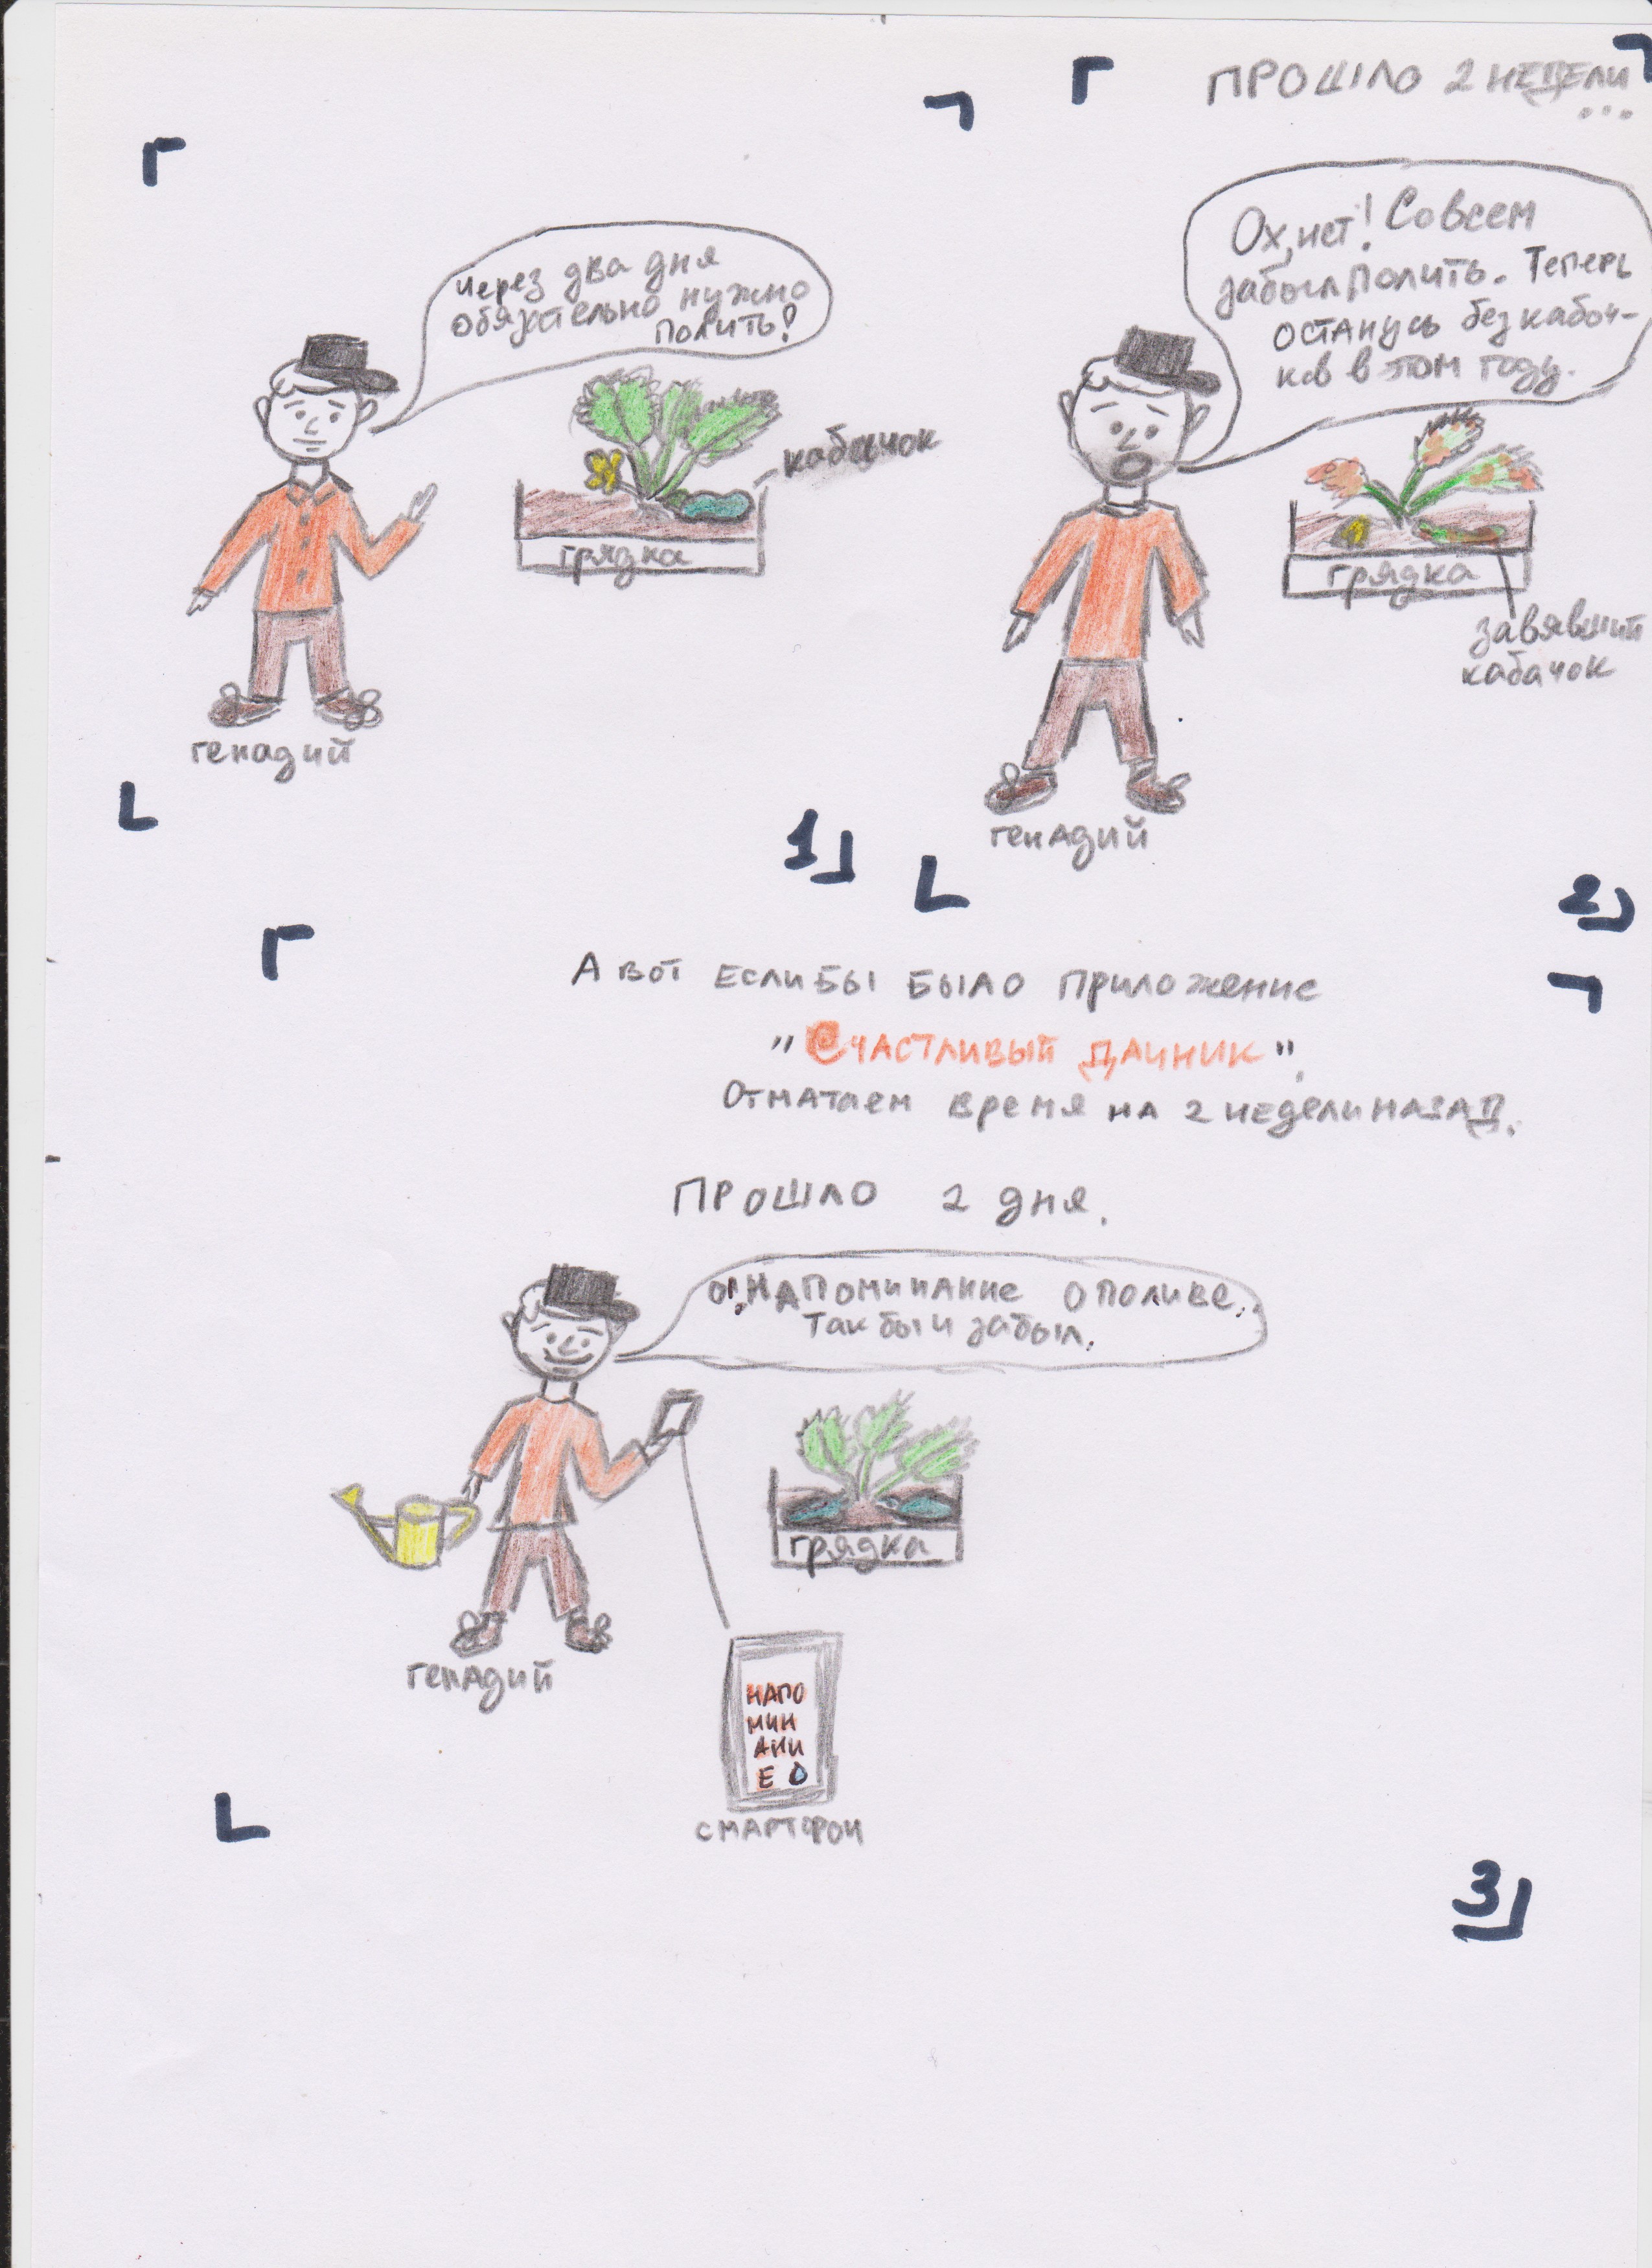 Через два дня
обязательно нужно
полить!
кабачок
грядка
генадий
1)
ПРОШЛО 2 НЕДЕЛИ
...
Ох, нет! Совсем
забыл полить. Теперь
останусь без кабач-
ков в том году.
грядка
завявший
кабачок
генадий
2)
А вот если бы было приложение
"Счастливый дачник".
Отматаем время на 2 недели назад.
Прошло 2 дня.
О! Напоминание о поливе.
Так бы и забыл.
грядка
генадий
НАПО
МИН
АНИ
Е
смартфон
3)